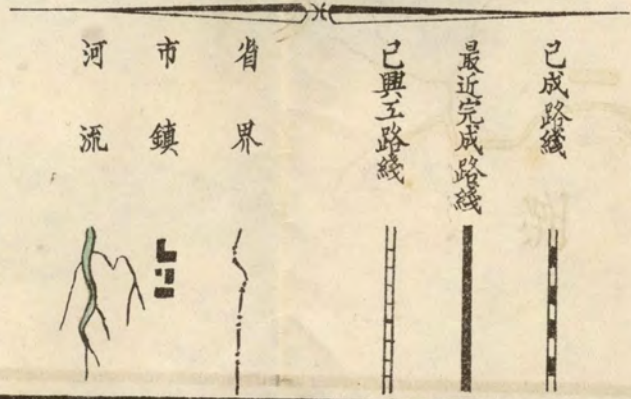 已成路綫
最近完成路綫
已興工路綫
省界
市鎮
河流